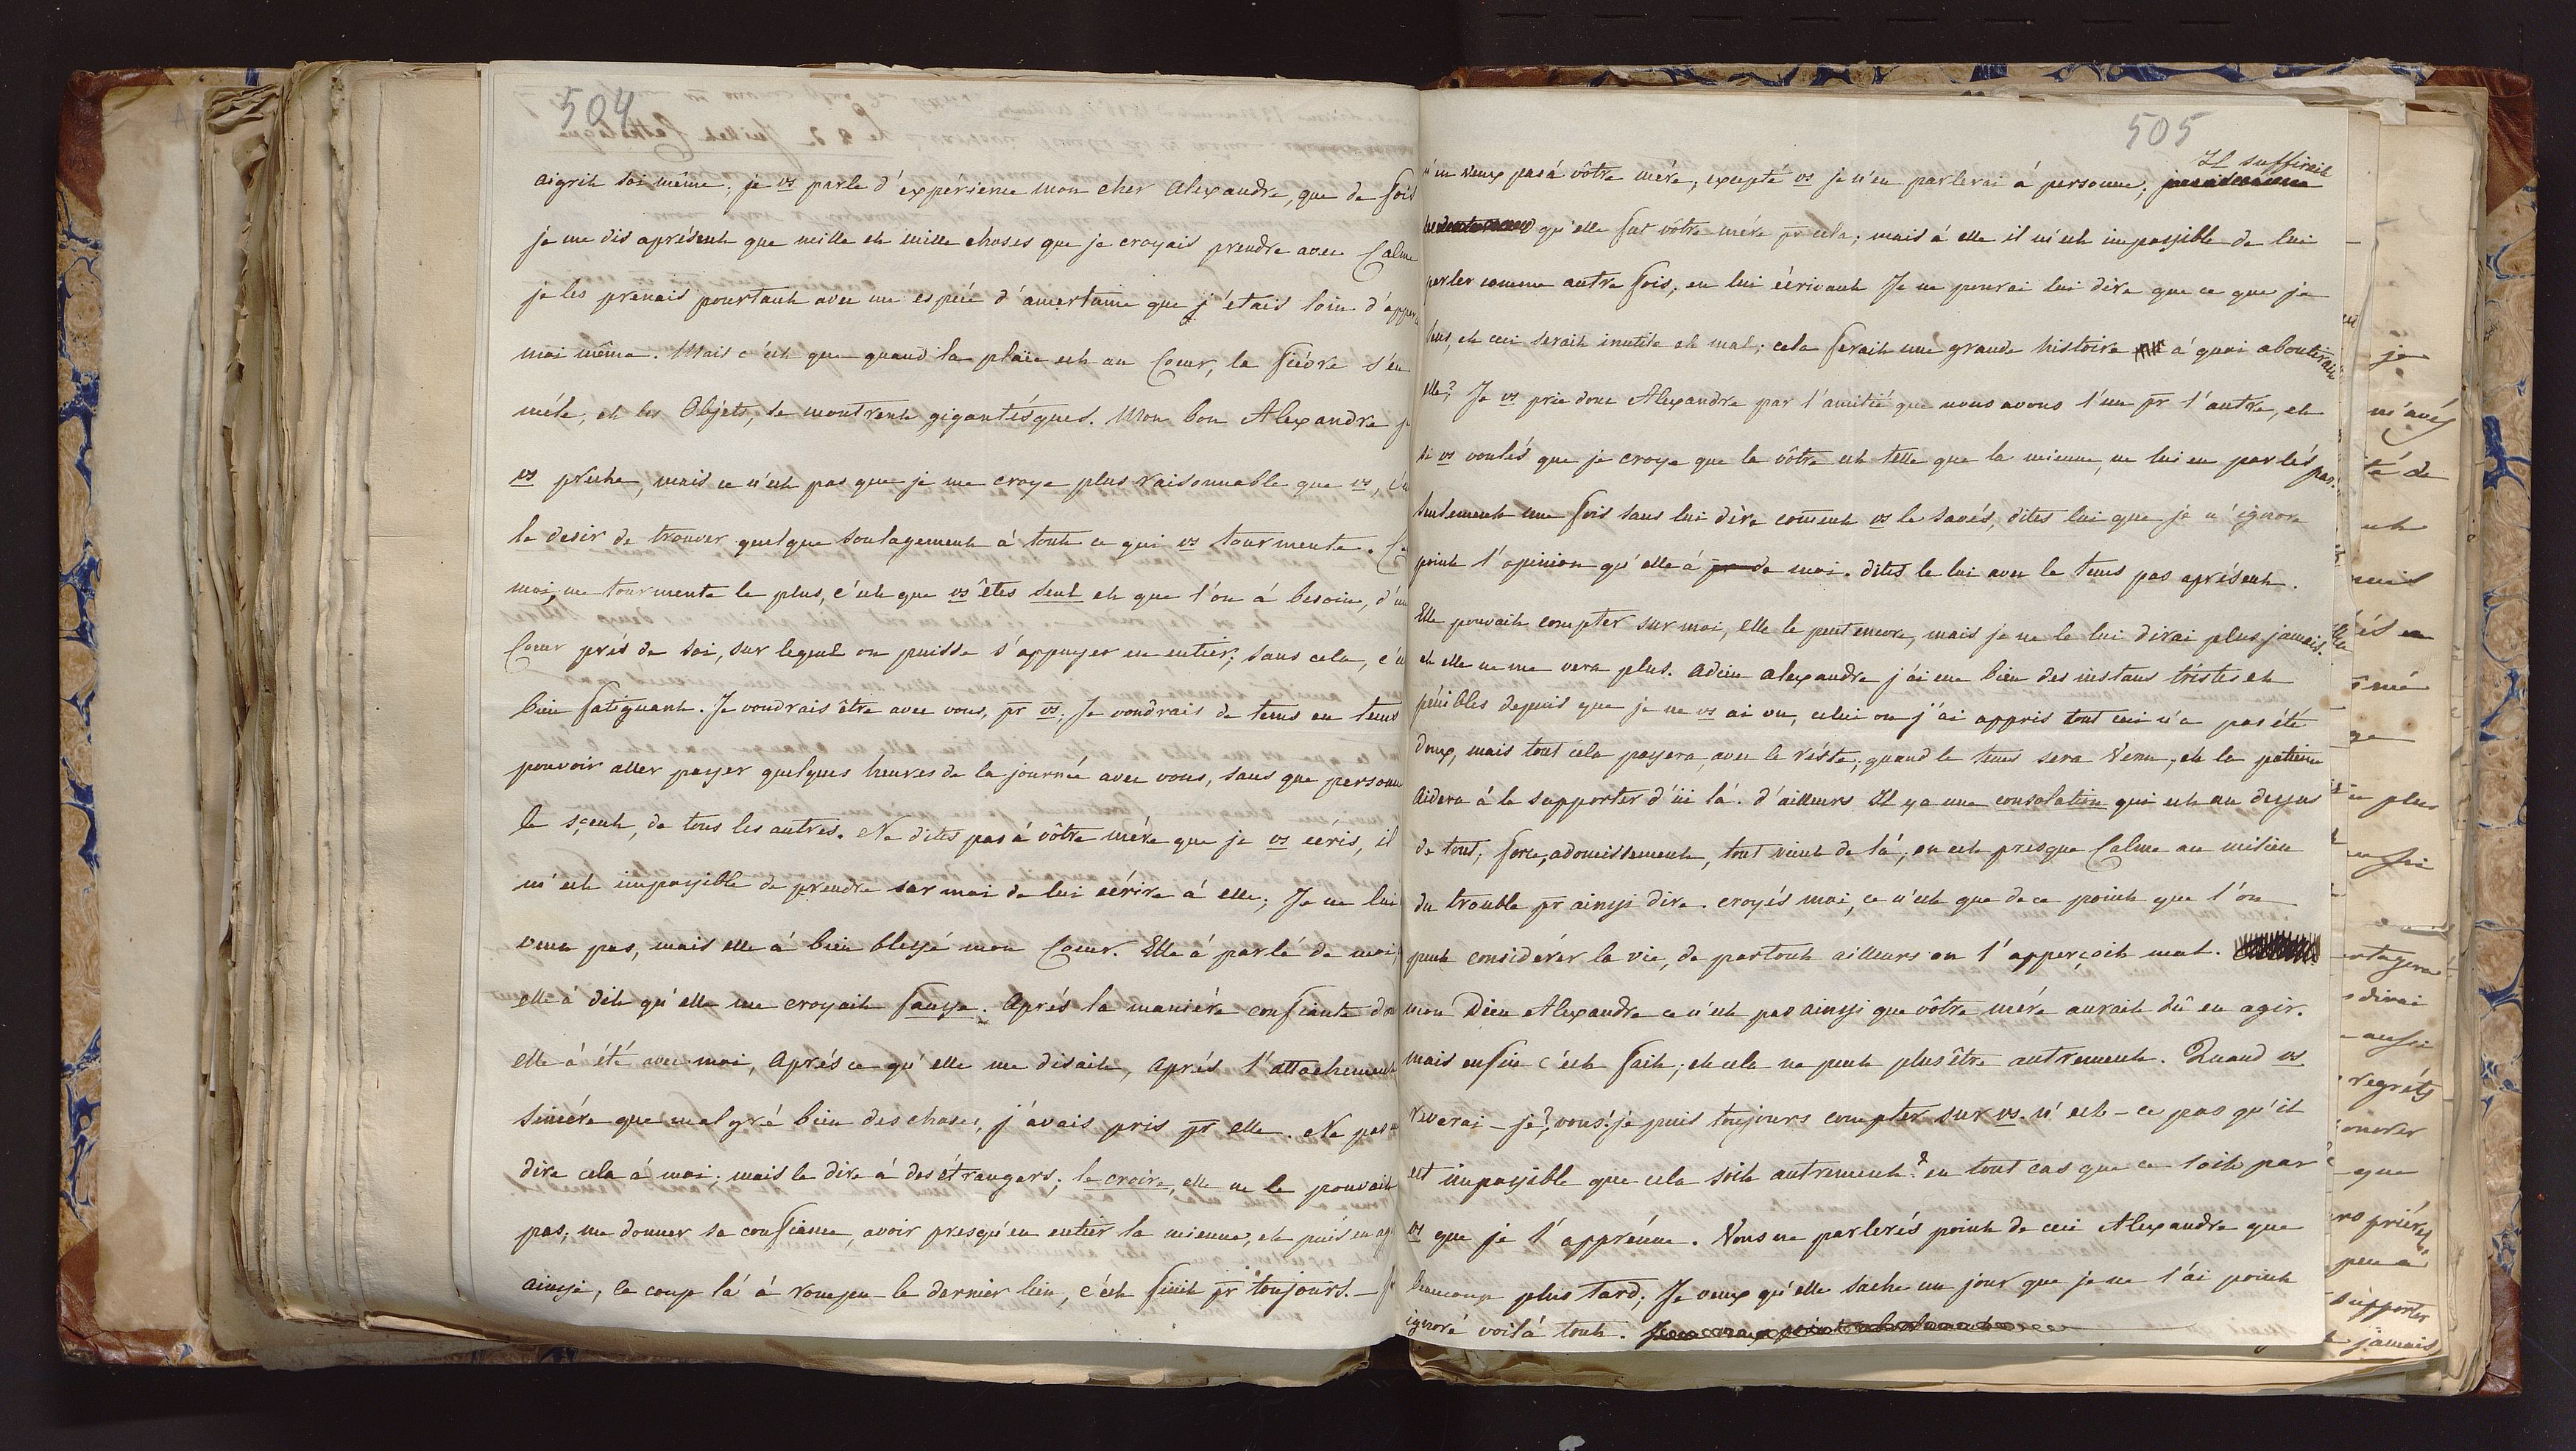 504
aigrit soi même. je vs parle d'expérience mon cher Alexandre, que de fois
je me dis aprésent que mille et mille choses que je croyais prendre avec Calme
je les prenais pourtant avec une espéce d'amertume que j'étais loin d'apper
moi même. Mais c'est que quand la plaïe est au Coeur, la fiévre s'en
méle, et les Objets, se montrent gigantésques. Mon bon Alexandre je
vs preche, mais ce n'est pas que je me croye plus raisonnable que vs, c'e
le desir de trouver quelque soulagement à tout ce qui vs tourmente. Ce
moi, me tourmente le plus, c'est que vs êtes seul et que l'on à besoin, d'un
Coeur prés de soi, sur lequel on puisse s'appuyer en entier; sans cela, c'e
bien fatiguant. Je voudrais être avec vous, pr vs. Je voudrais de tems en tems
pouvoir aller passer quelques heures de la journée avec vous, sans que personne
le sçeut, de tous les autres. Ne dites pas à vôtre mére que je vs écris, il
m'est impossible de prendre sur moi de lui écrire à elle; Je ne lui
veux pas, mais elle à bien blessé mon Coeur. Elle à parlé de moi,
elle à dit qu'elle me croyait fausse. Aprés la maniére confiante don
elle à été avec moi, Aprés ce qu'elle me disait, Aprés l'attachement
sincére que malgré bien des choses, j'avais pris pr elle. Ne pas
dire cela à moi; mais le dire à des étrangers; le croire, elle ne le pouvait
pas; me donner sa confiance, avoir presqu'en entier la mienne, et puis en ag
ainssi, le coup là à rompu le dernier lien, c'est finit pr toujours. — Je
505
n'en veux pas à vôtre mére, excepté vs je n'en parlerai à personne; Il suffirait
qu'elle fut vôtre mére pr cela; mais à elle il m'est impossible de lui
parler comme autre fois; en lui écrivant Je ne pourai lui dire que ce que je
sens, et ceci serait inutile et mal; cela ferait une grande histoire à quoi aboutirait
elle? Je vs prie donc Alexandre par l'amitié que nous avons l'un pr l'autre, et
si vs voulés que je croye que la vôtre est telle que la mienne, ne lui en parlés pas.
Seulement une fois sans lui dire coment vs le savés, dites lui que je n'ignore
point l'opinion qu'elle à pr de moi. dites le lui avec le tems pas aprésent.
Elle pouvait compter sur moi, elle le peut encore, mais je ne le lui dirai plus jamais.
et elle ne me vera plus. Adieu Alexandre j'ai eue bien des instans tristes et
pénibles depuis que je ne vs ai vu, celui ou j'ai appris tout ceci n'a pas été
doux, mais tout cela passera, avec le réste; quand le tems sera venu; et la patience
Aidera à le supporter d'ici là. d'ailleurs Il y a une consolation qui est au dessus
de tout; force, adoucissement, tout vient de là; on est presque Calme au milieu
du trouble pr ainssi dire. croyés moi, ce n'est que de ce point que l'on
peut considérér la vie, de partout ailleurs on l'apperçoit mal.
mon Dieu Alexandre ce n'est pas ainssi que vôtre mére aurait dû en agir.
mais enfin c'est fait; et cela ne peut plus être autrement. Quand vs
reverai-je?, vous! je puis toujours compter sur vs. n'est-ce pas qu'il
est impossible que cela soit autrement? en tout cas que ce soit par
vs que je l'apprénne. Vous ne parlerés point de ceci Alexandre que
beaucoup plus tard; Je veux qu'elle sache un jour que je ne l'ai point
ignoré voilà tout.